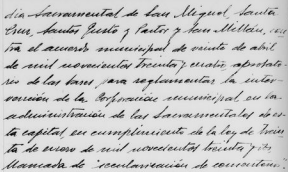 dia Sacramental de San Miguel, Santa
Cruz, Santos Justo y Pastor y San Millán, con-
tra el acuerdo municipal de veinte de abril
de mil novecientos treinta y cuatro, aprobato-
rio de las bases para reglamentar la inter-
vención de la Corporación municipal en la
administración de las Sacramentales de es-
ta capital, en cumplimiento de la ley de trein-
ta de enero de mil novecientos treinta y dos
llamada de "secularización de cementerios".